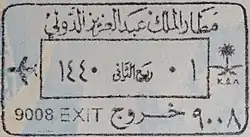 مطار الملك عبدالعزيز الدولي
٠١ ربيع الثاني ١٤٤٠
K.S.A
9008 EXIT خروج ٩٠٠٨